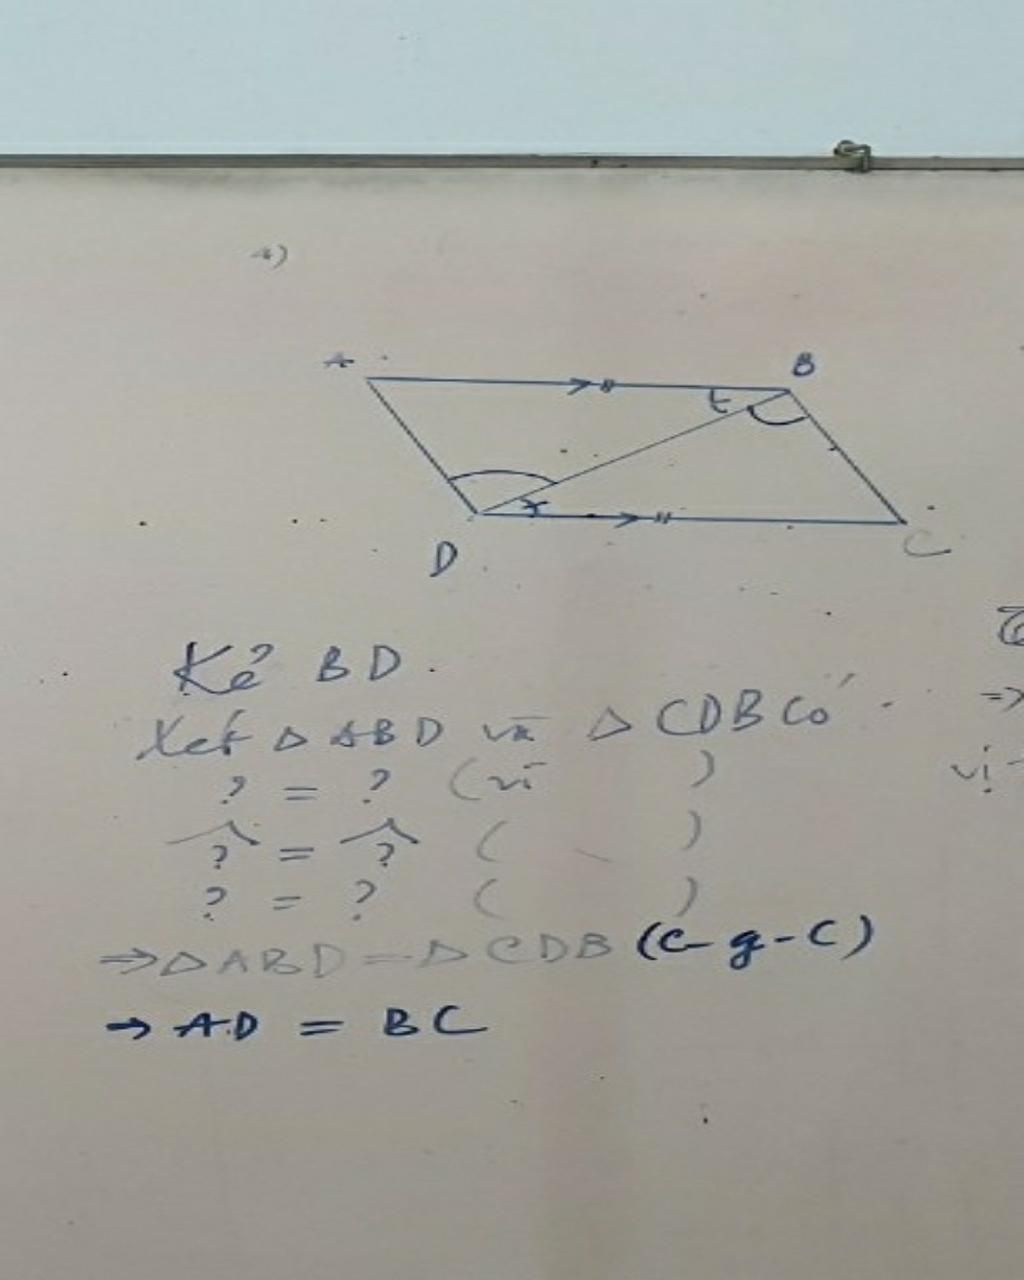 4)
A B
D C
Kẻ BD.
Xét Δ ABD và Δ CDB có
? = ? (vì )
? = ? ( )
? = ? ( )
⇒ Δ ABD = Δ CDB (c-g-c)
⇒ AD = BC
⇒
vị